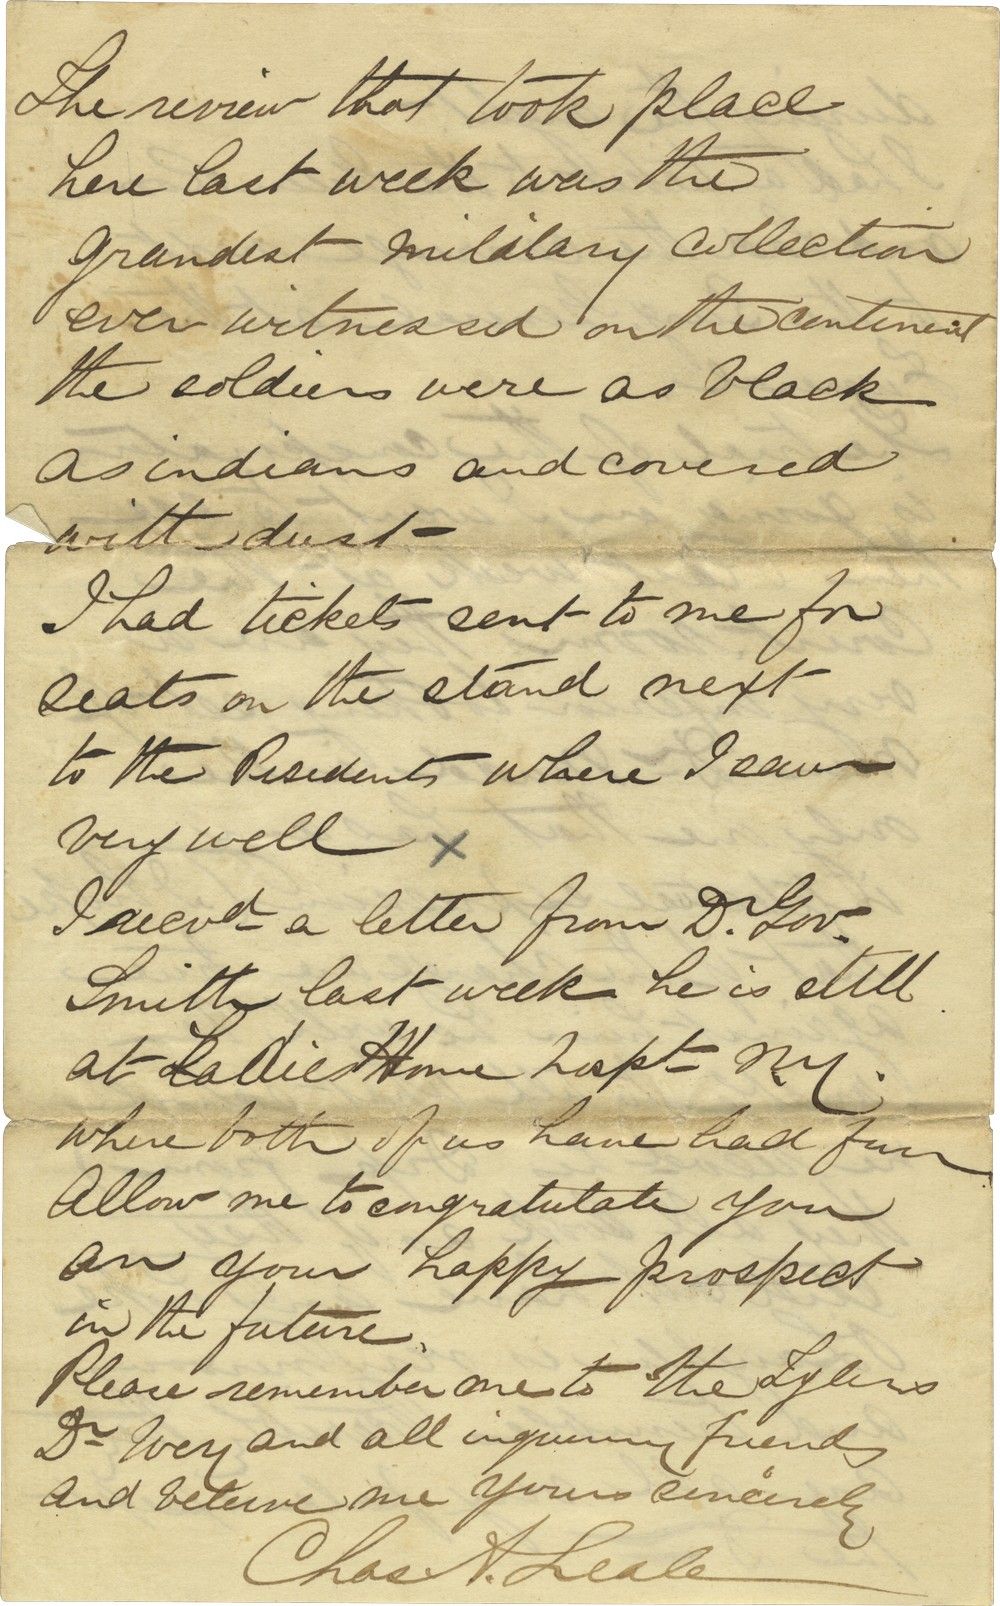 The review that took place
here last week was the
grandest military collection
ever witnessed on the continent
the soldiers were as black
as indians and covered
with dust -
I had tickets sent to me for
seats on the stand next
to the Presidents where I saw
very well x
I recevd a letter from Dr. Gov.
Smith last week he is still
at Ladies Home hospt - N.Y.
where both of us have had fun
Allow me to congratulate you
on your happy prospect
in the future.
Please remember me to the Tylers
Dr Wey and all inquiring friends
and believe me yours sincerely
Chas A. Leale